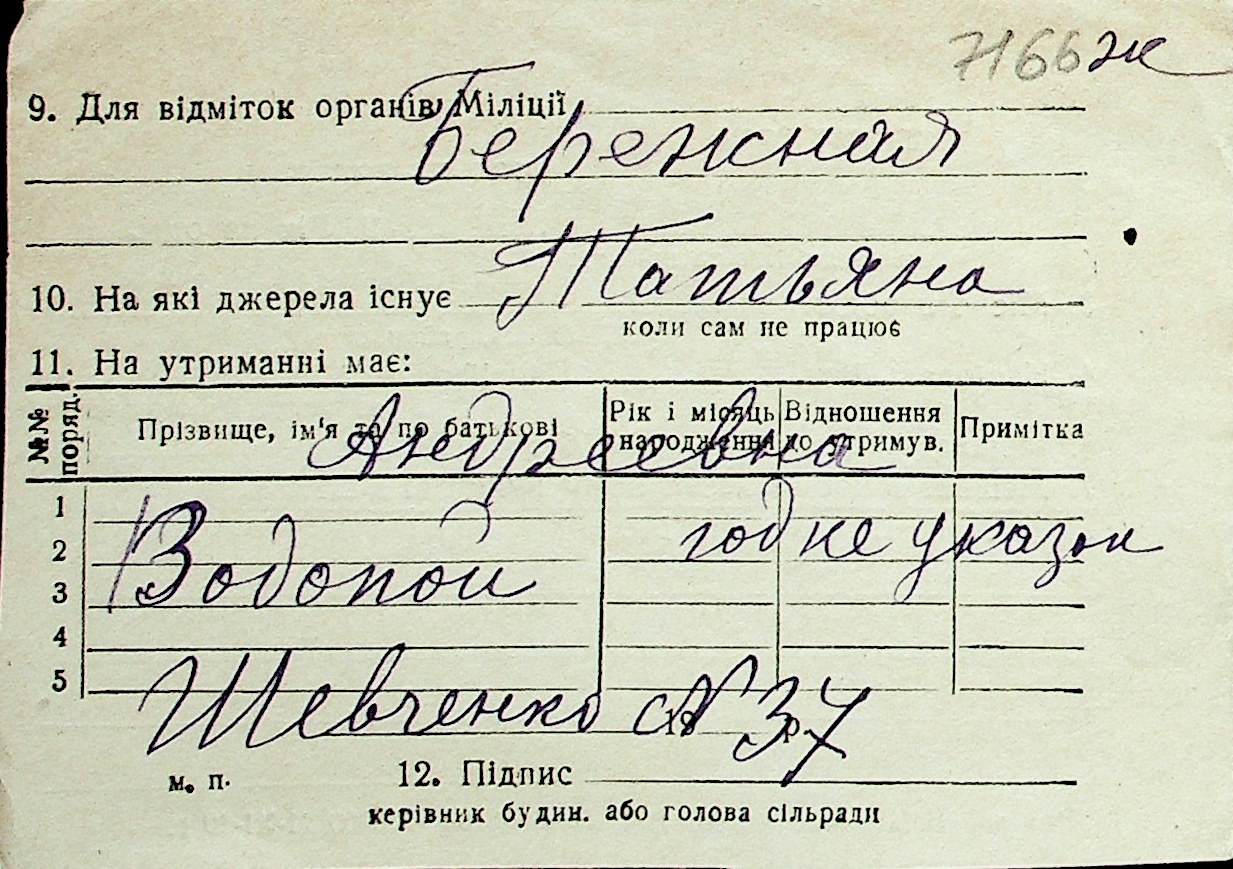 7166 ж
9. Для відміток органів Міліції
Бережная
Татьяна
10. На які джерела існує
коли сам не працює
11. На утриманні має:
№№ поряд. Прізвище, ім'я та по батькові Рік і місяць народження Відношення до отримув. Примітка
Андреевна
1
год не указан
2
Водопой
3
4
5
Шевченко № 37
м. п. 12. Підпис
керівник будин. або голова сільради